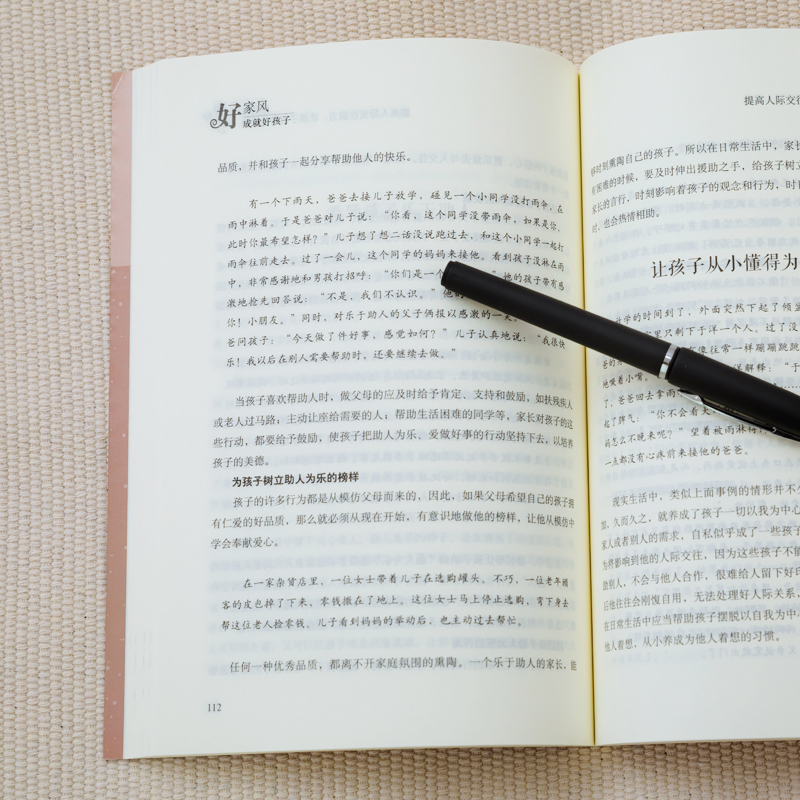 好家风
成就好孩子
品质，并和孩子一起分享帮助他人的快乐。
有一个下雨天，爸爸去接儿子放学，碰见一个小同学没打雨伞，在
雨中淋着。于是爸爸对儿子说：“你看，这个同学没带雨伞，如果是你，
此时你最希望怎样？”儿子想了想二话没说跑过去，和这个小同学一起打
雨伞往前走去。过了一会儿，这个同学的妈妈来接他。看到孩子没淋在雨
中，非常感谢地和男孩打招呼：“你们是一个 她的孩子带有感
激地抢先回答说：“不是，我们不认识。”他的
你！小朋友。”同时，对乐于助人的父子俩报以感激的一笑。
爸问孩子：“今天做了件好事，感觉如何？”儿子认真地说：“我很快
乐！我以后在别人需要帮助时，还要继续去做。”
当孩子喜欢帮助人时，做父母的应及时给予肯定、支持和鼓励，如扶残疾人
或老人过马路；主动让座给需要的人；帮助生活困难的同学等，家长对孩子的这
些行动，都要给予鼓励，使孩子把助人为乐、爱做好事的行动坚持下去，以培养
孩子的美德。
为孩子树立助人为乐的榜样
孩子的许多行为都是从模仿父母而来的，因此，如果父母希望自己的孩子拥
有仁爱的好品质，那么就必须从现在开始，有意识地做他的榜样，让他从模仿中
学会奉献爱心。
在一家杂货店里，一位女士带着儿子在选购罐头。不巧，一位老年顾
客的皮包掉了下来，零钱撒在了地上。这位女士马上停止选购，弯下身去
帮这位老人捡零钱。儿子看到妈妈的举动后，也主动过去帮忙。
任何一种优秀品质，都离不开家庭氛围的熏陶。一个乐于助人的家长，能
112
提高人际交往
够时刻熏陶自己的孩子。所以在日常生活中，家长
有困难的时候，要及时伸出援助之手，给孩子树立
家长的言行，时刻影响着孩子的观念和行为，时
时，也会热情相助。
让孩子从小懂得为
学的时间到了，外面突然下起了倾盆
里只剩下于洋一个人。过了没
像往常一样蹦蹦跳跳
地噘着小嘴。 解释：“于
了，爸爸回去拿雨
起了脾气：“你不会看天
前怎么不晚来呢？”望着被雨淋
一点都没有心疼前来接他的爸爸。
现实生活中，类似上面事例的情形并不少
加，久而久之，就养成了孩子一切以我为中心
家人或者别人的需求，自私似乎成了一些孩子
为将影响到他的人际交往，因为这些孩子不能
助别人，不会与他人合作，很难给人留下好印
后他往往会刚愎自用，无法处理好人际关系，
在日常生活中应当帮助孩子摆脱以自我为中
他人着想，从小养成为他人着想的习惯。